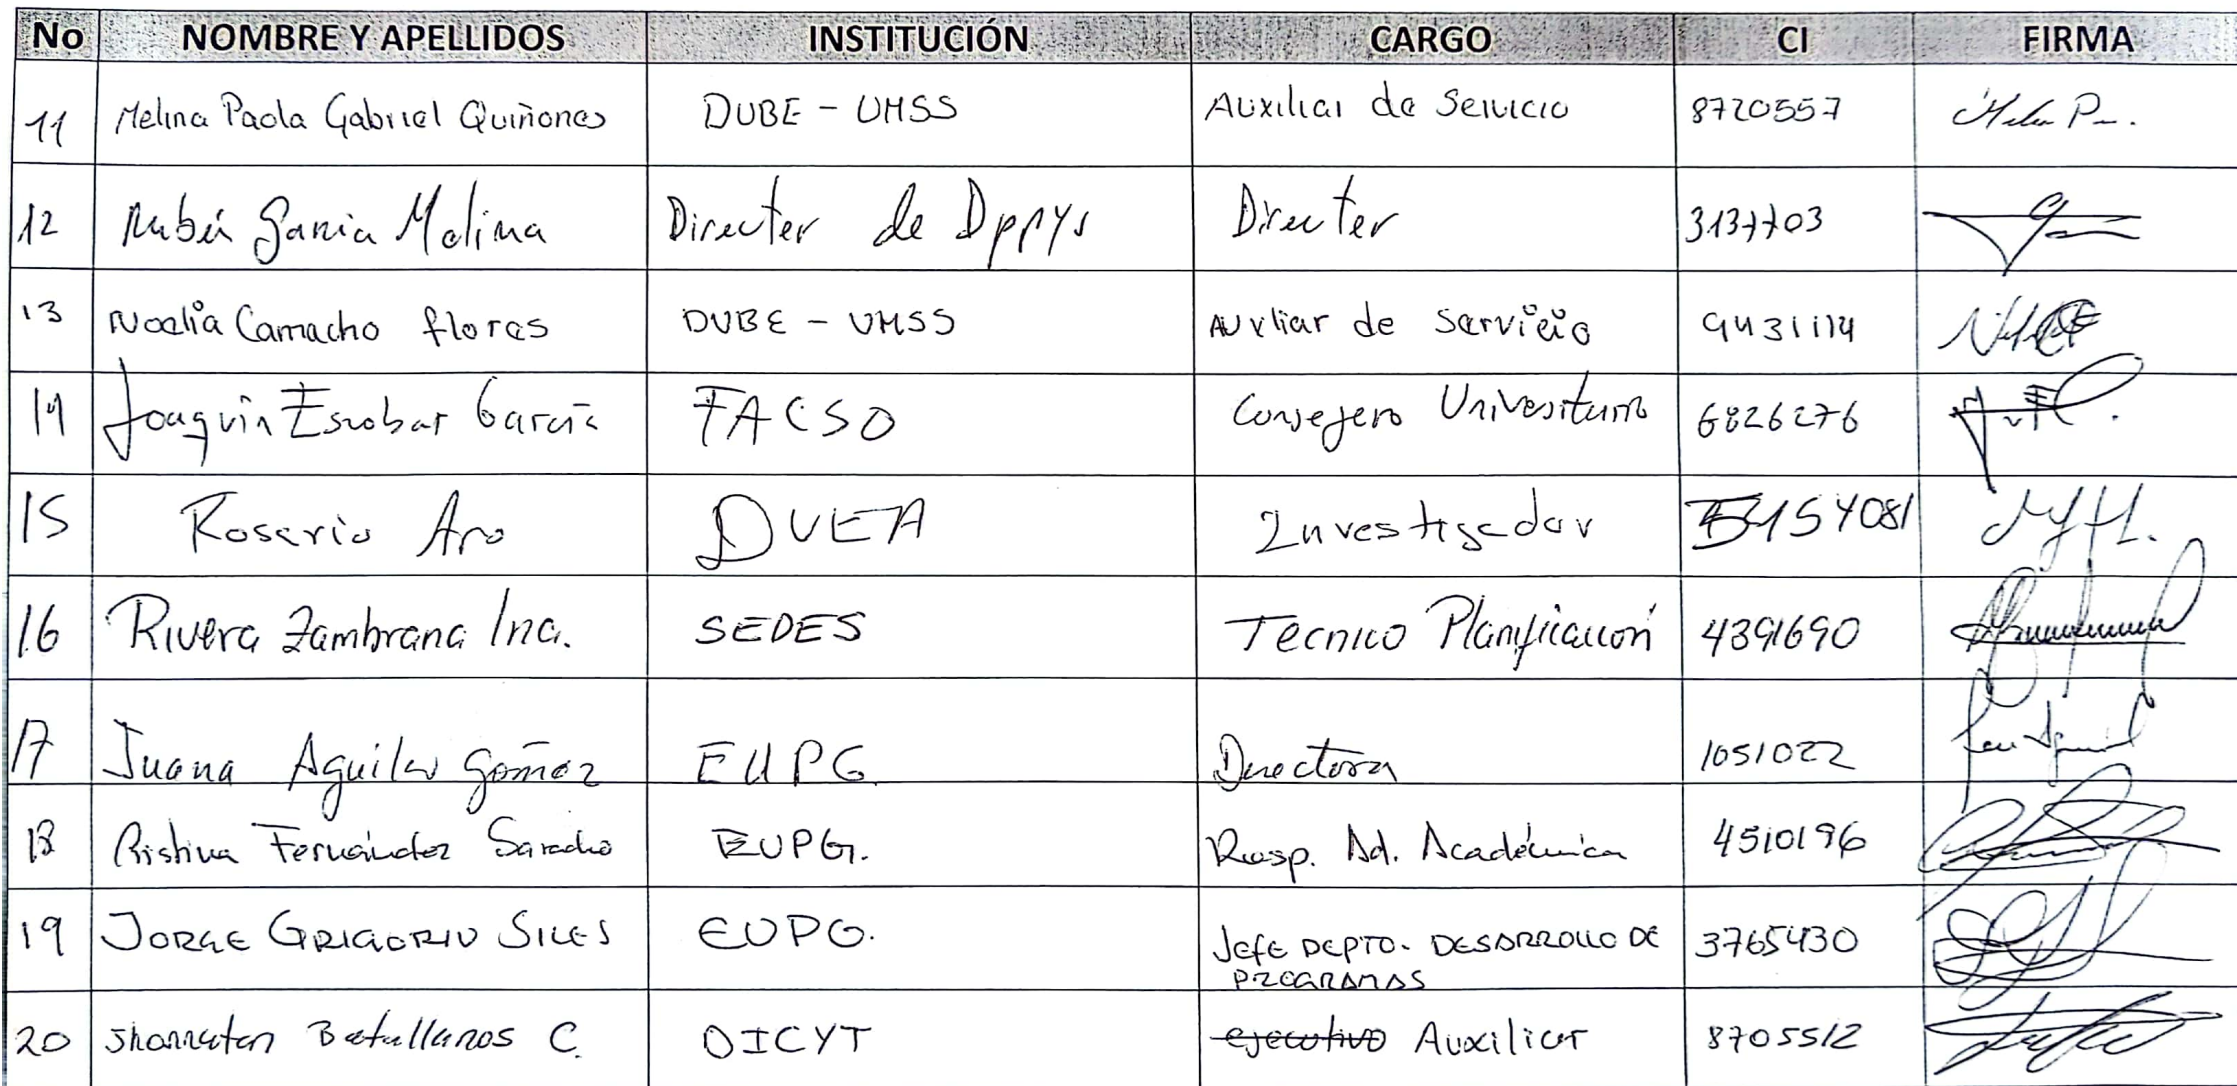 No NOMBRE Y APELLIDOS INSTITUCIÓN CARGO CI FIRMA
11 Melina Paola Gabriel Quiñones DUBE - UMSS Auxiliar de Servicio 8720557
12 Rubén García Molina Director de Dppys Director 3137703
13 Noelia Camacho flores DUBE - UMSS Auxliar de servicio 9431114
14 Joaquin Escobar García FACSO Consejero Universitario 6826276
15 Rosario Aro DUEA Investigador 5154081
16 Rivera Zambrana Ina. SEDES Tecnico Planificación 4391690
17 Juana Aguilar Gómez EUPG Directora 1051022
18 Cristina Fernández Saracho EUPG. Resp. Ad. Académica 4510196
19 JORGE GRIGORIU SILES EUPG. Jefe DEPTO. DESARROLLO DE
PROGRAMAS 3765430
20 C. DICYT ejecutivo Auxiliar 8705512